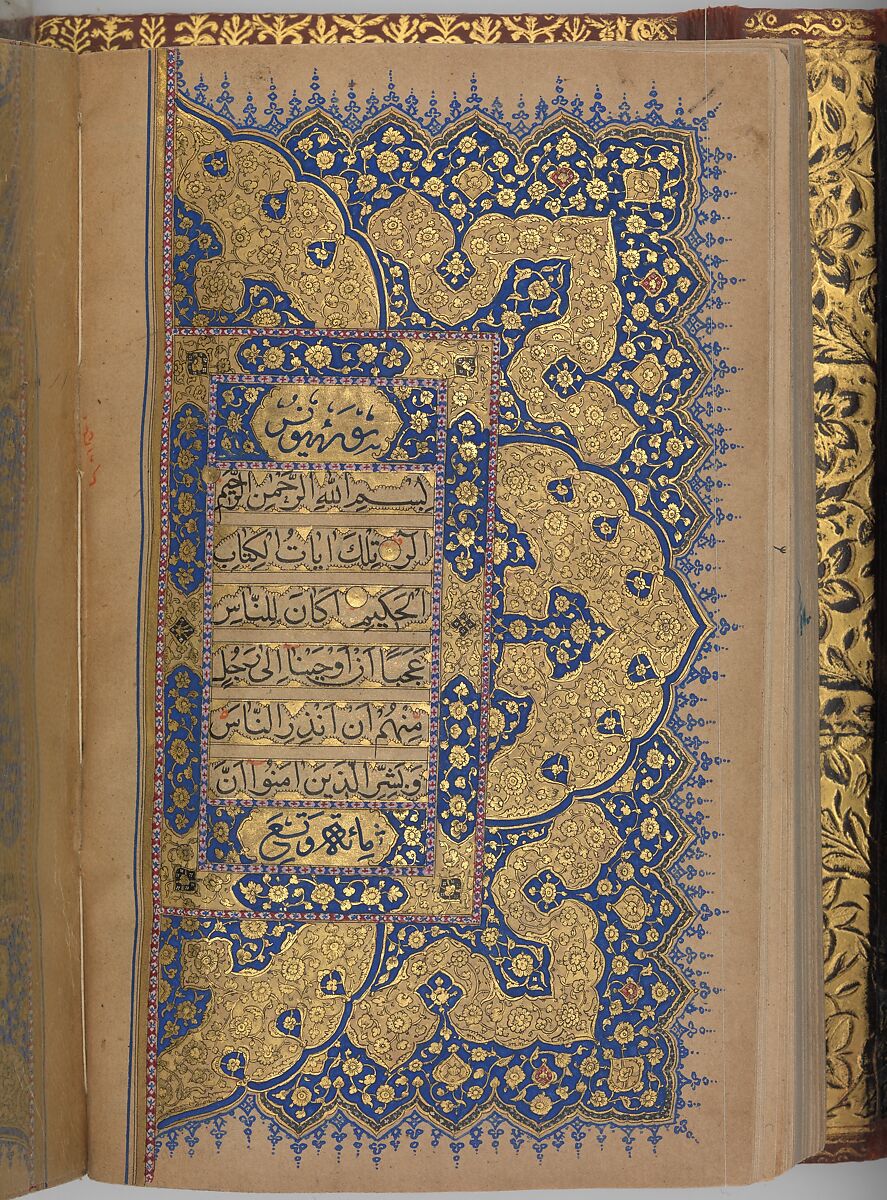 سورة يونس
بسم الله الرحمن الرحيم
الر تلك ايات الكتاب
الحكيم اكان للناس
عجبا ان اوحينا الى رجل
منهم ان انذر الناس
وبشر الذين امنوا ان
مائة وتسع